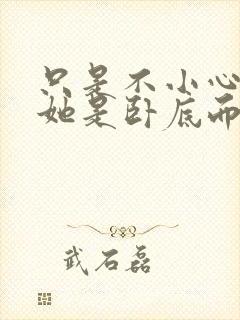 只是不小心
她是卧底而
武石磊